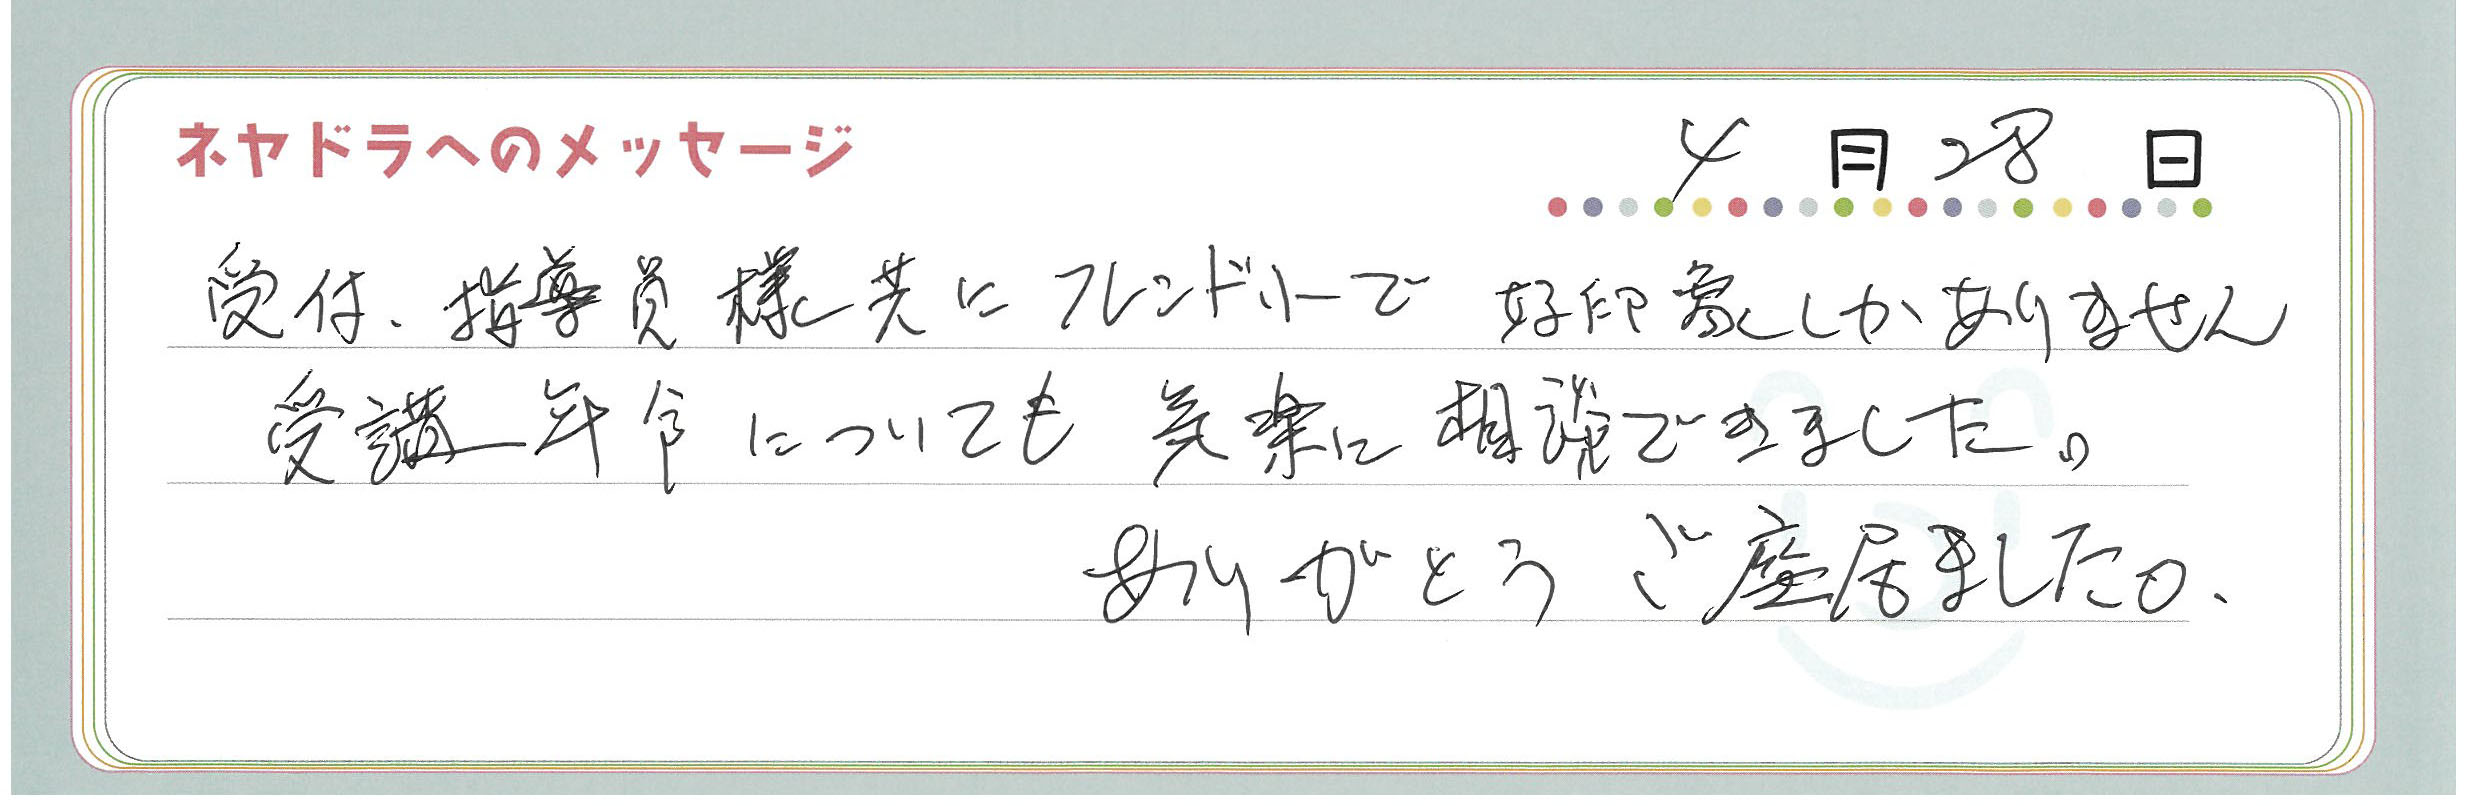 ネヤドラへのメッセージ
4月28日
受付、指導員様共にフレンドリーで好印象しかありません
受講年令についても気楽に相談できました。
ありがとうご座居ました。